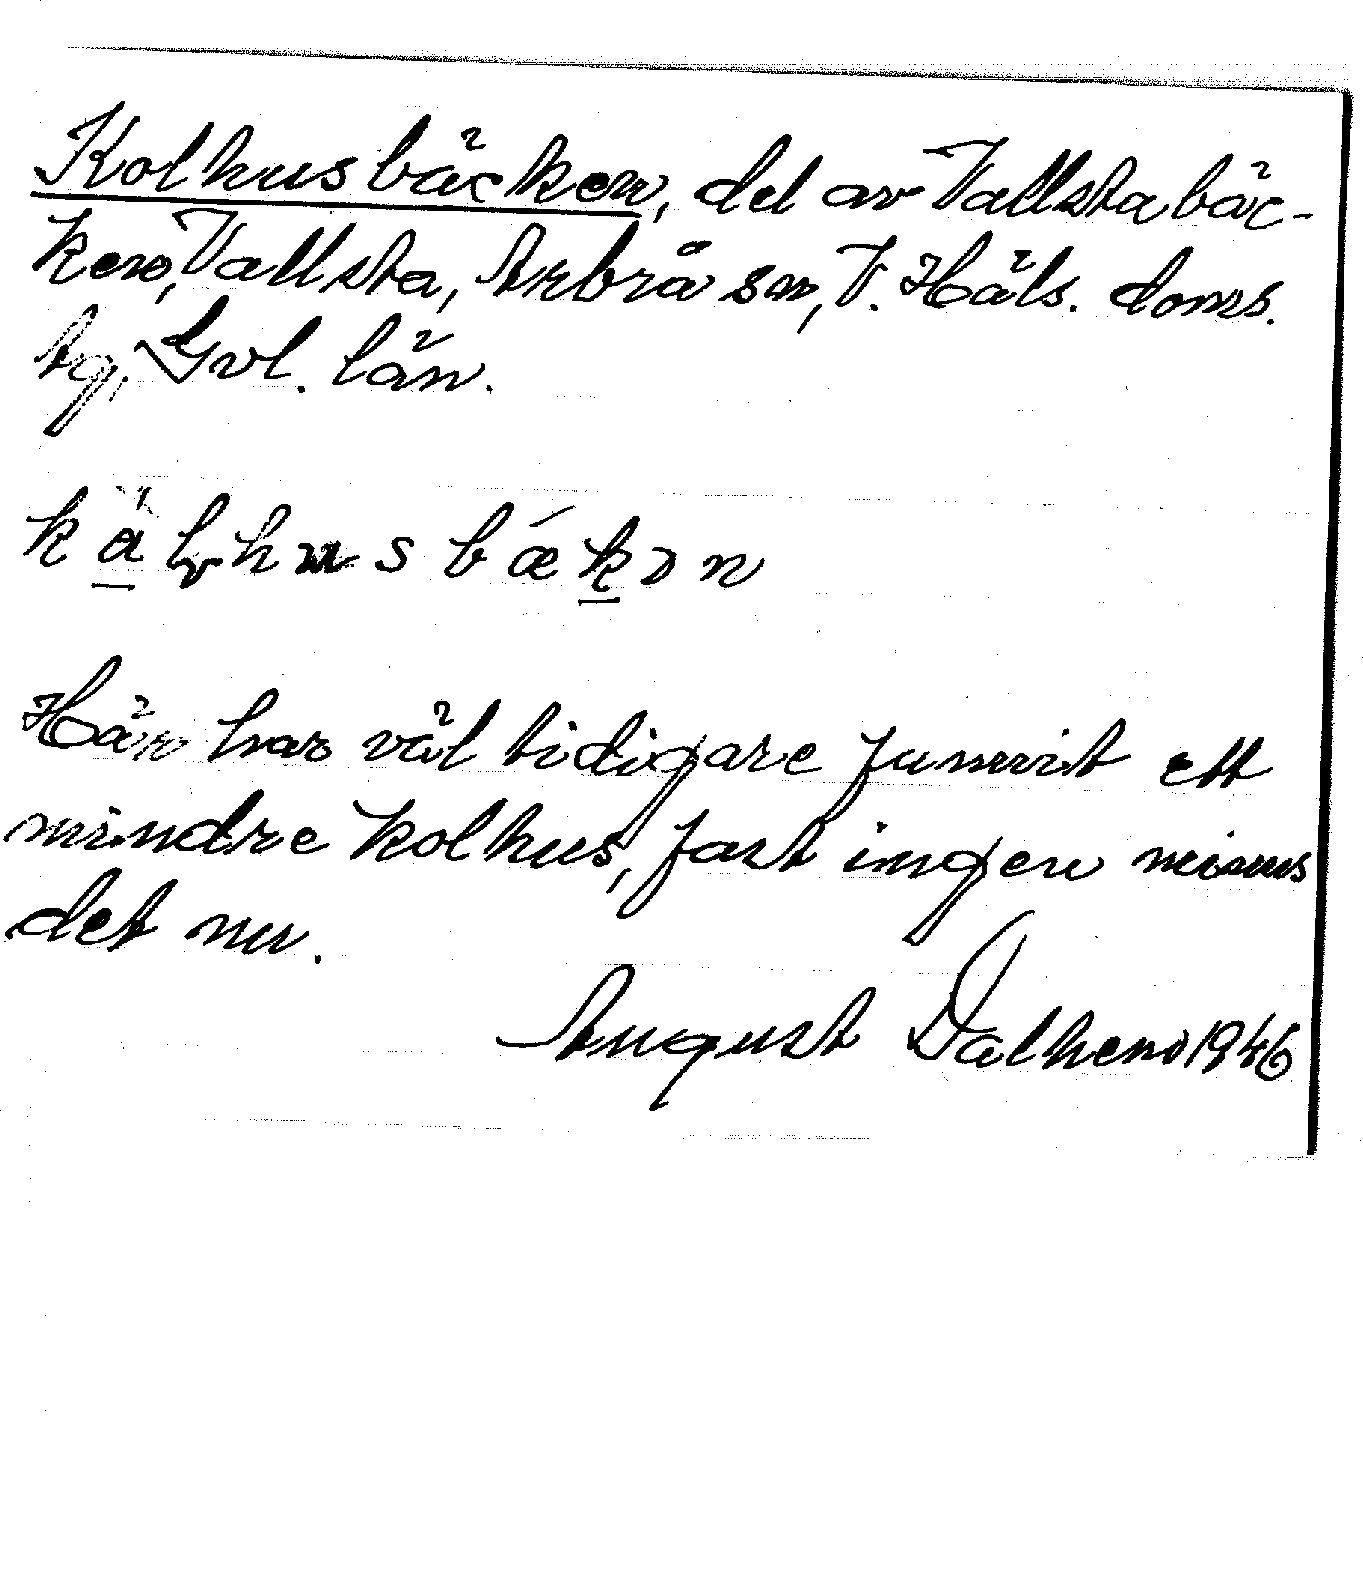 Kolhusbäcken, del av Vallstabäc-
ken, Vallsta, Arbrå sn, V. Häls. doms.
tg, Gvl. län.
kålhusbækən
Här har väl tidigare funnits ett
mindre kolhus, fast ingen minns
det nu.
August Dalhem 1946